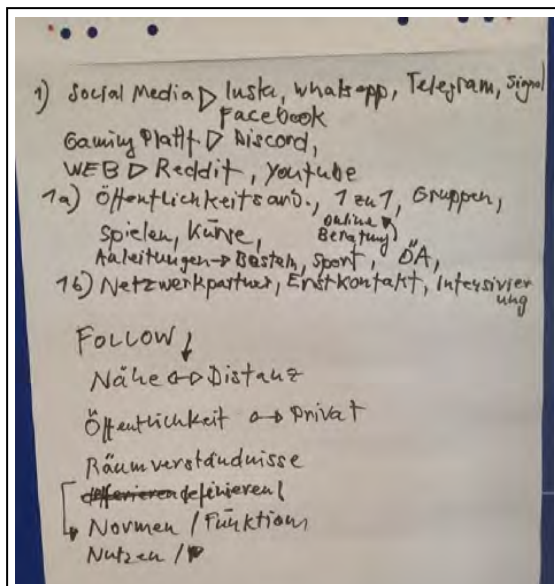 1) Social Media ▷ Insta, whatsapp, Telegram, Signal
Facebook
Gaming Plattf ▷ Discord,
WEB ▷ Reddit, Youtube
1a) Öffentlichkeitsarb., 1 zu 1, Gruppen,
Spielen, Kurse, Online Beratung
Anleitungen → Basteln, Sport, ÖA,
1b) Netzwerkpartner, Erstkontakt, Intensivier
ung
FOLLOW
Nähe ↔ Distanz
Öffentlichkeit ↔ Privat
Raumverständnisse
definieren!
Normen / Funktion,
Nutzen /